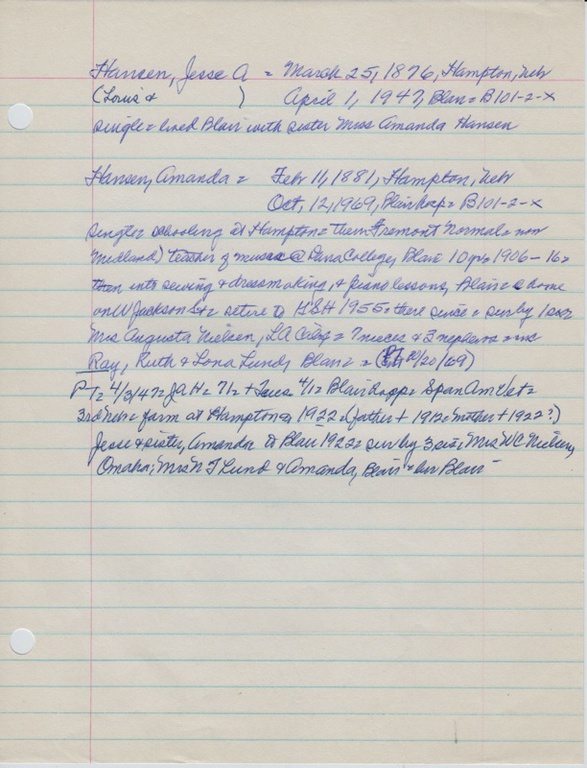 Hansen, Jesse A = March 25, 1876, Hampton, Neb
(Louis & ) April 1, 1947, Blair = B101-2-X
single = lived Blair with sister Miss Amanda Hansen
Hansen, Amanda = Feb 11, 1881, Hampton, Neb
Oct, 12, 1969, Blair hosp = B101-2-X
single = schooling at Hampton = then Fremont Normal = now
Midland) teacher of music @ Dana College, Blair 10 yrs 1906-16 =
then into sewing & dressmaking, & piano lessons, Blair = home
on W Jackson St = retire to 1955 = there since = sur by 1 sis
Mrs Augusta Nielsen, LA Calif = 7 nieces & 3 nephews =
Ray, Ruth & Lona Lund, Blair = ( /20/69)
PT = 4/3/47 = JAH = 71 = + Tues. 4/1 = Blair hosp = Span Am Vet =
3rd Neb = farm at Hampton 1922 = (father + 1912 = mother + 1922?)
Jesse & sister, Amanda to Blair 1922 = sur by 3 sis, Mrs WC Nielsen,
Omaha; Mrs N T Lund & Amanda, Blair = bur Blair